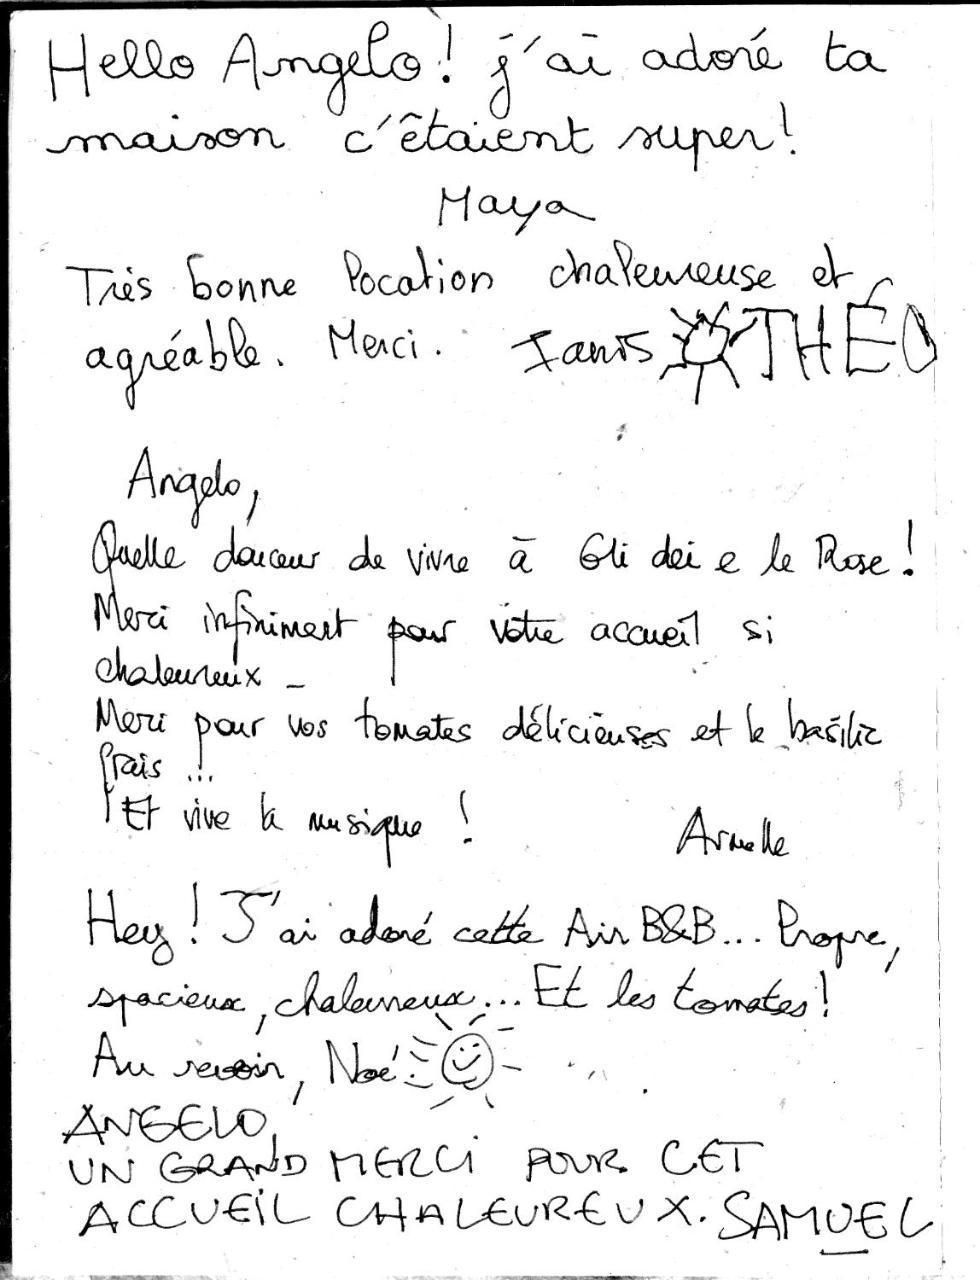 Hello Angelo! j'ai adoré ta
maison c'êtaient super!
Maya
Très bonne location chaleureuse et
agréable. Merci. Ianis THÉO
Angelo,
Quelle douceur de vivre à Gli dei e le Rose!
Merci infiniment pour votre accueil si
chaleureux_
Merci pour vos tomates délicieuses et le basilic
frais...
Et vive la musique!
Armelle
Hey! J'ai adoré cette Air B&B... Propre,
spacieux, chaleureux... Et les tomates!
Au revoir, Noé.
ANGELO,
UN GRAND MERCi POUR CET
ACCUEiL CHALEUREUX. SAMUEL